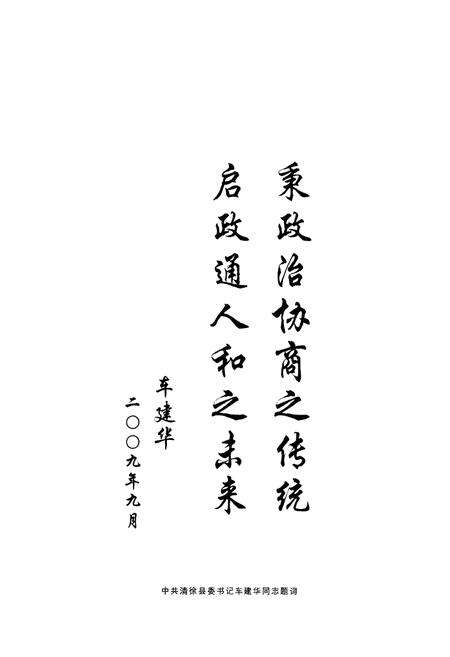 秉政治协商之传统
启政通人和之未来
车建华
二〇〇九年九月
中共清徐县委书记车建华同志题词